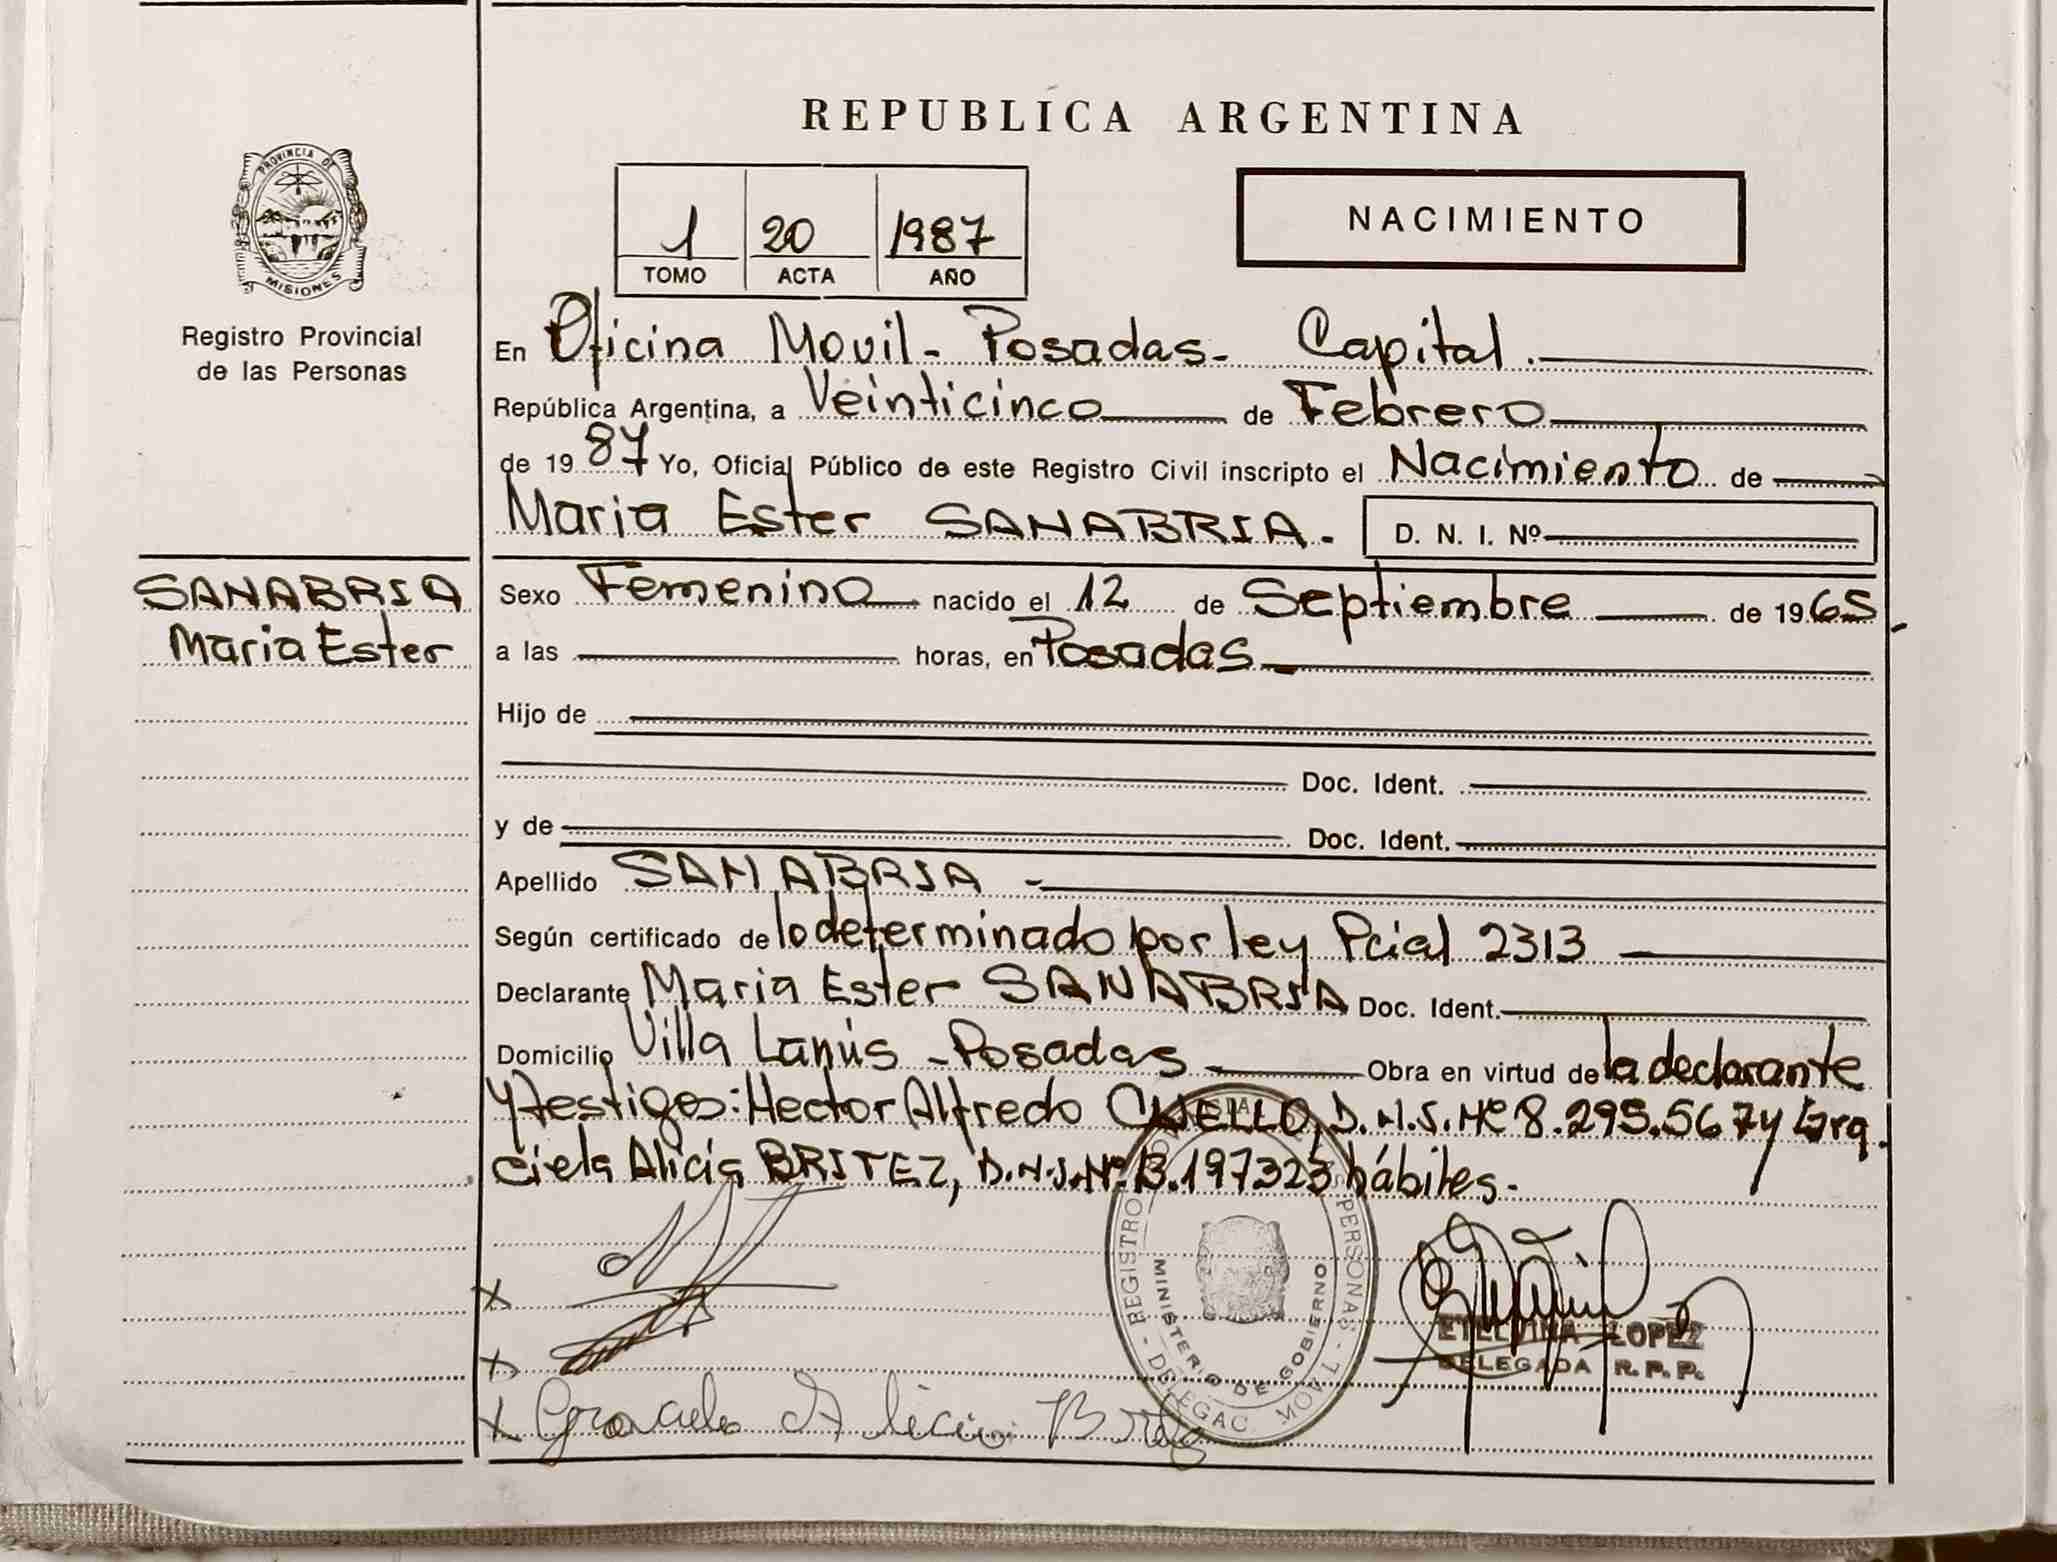 REPUBLICA ARGENTINA
PROVINCIA DE
MISIONES
Registro Provincial
de las Personas
1 20 1987
TOMO ACTA AÑO
NACIMIENTO
En Oficina Movil - Posadas - Capital.
República Argentina, a Veinticinco de Febrero
de 1987 Yo, Oficial Público de este Registro Civil inscripto el Nacimiento de
Maria Ester SANABRIA. D. N. I. Nº
SANABRIA
Maria Ester
Sexo Femenino nacido el 12 de Septiembre de 1965
a las horas, en Posadas
Hijo de
Doc. Ident.
y de Doc. Ident.
Apellido SANABRIA -
Según certificado de lo determinado por ley Pcial 2313
Declarante Maria Ester SANABRIA Doc. Ident.
Domicilio Villa Lanús - Posadas Obra en virtud de la declarante
y testigos: Hector Alfredo CUELLO, D.N.I. Nº 8.295.567 y Gra
ciela Alicia BRITEZ, D.N.I. Nº 13.197323 hábiles.-
REGISTRO PERSONAS
MINISTERIO DE GOBIERNO
DELEGAC. MOVIL
ETELVINA LOPEZ
DELEGADA R. P. P.
X
X
X Graciela Alicia Britez